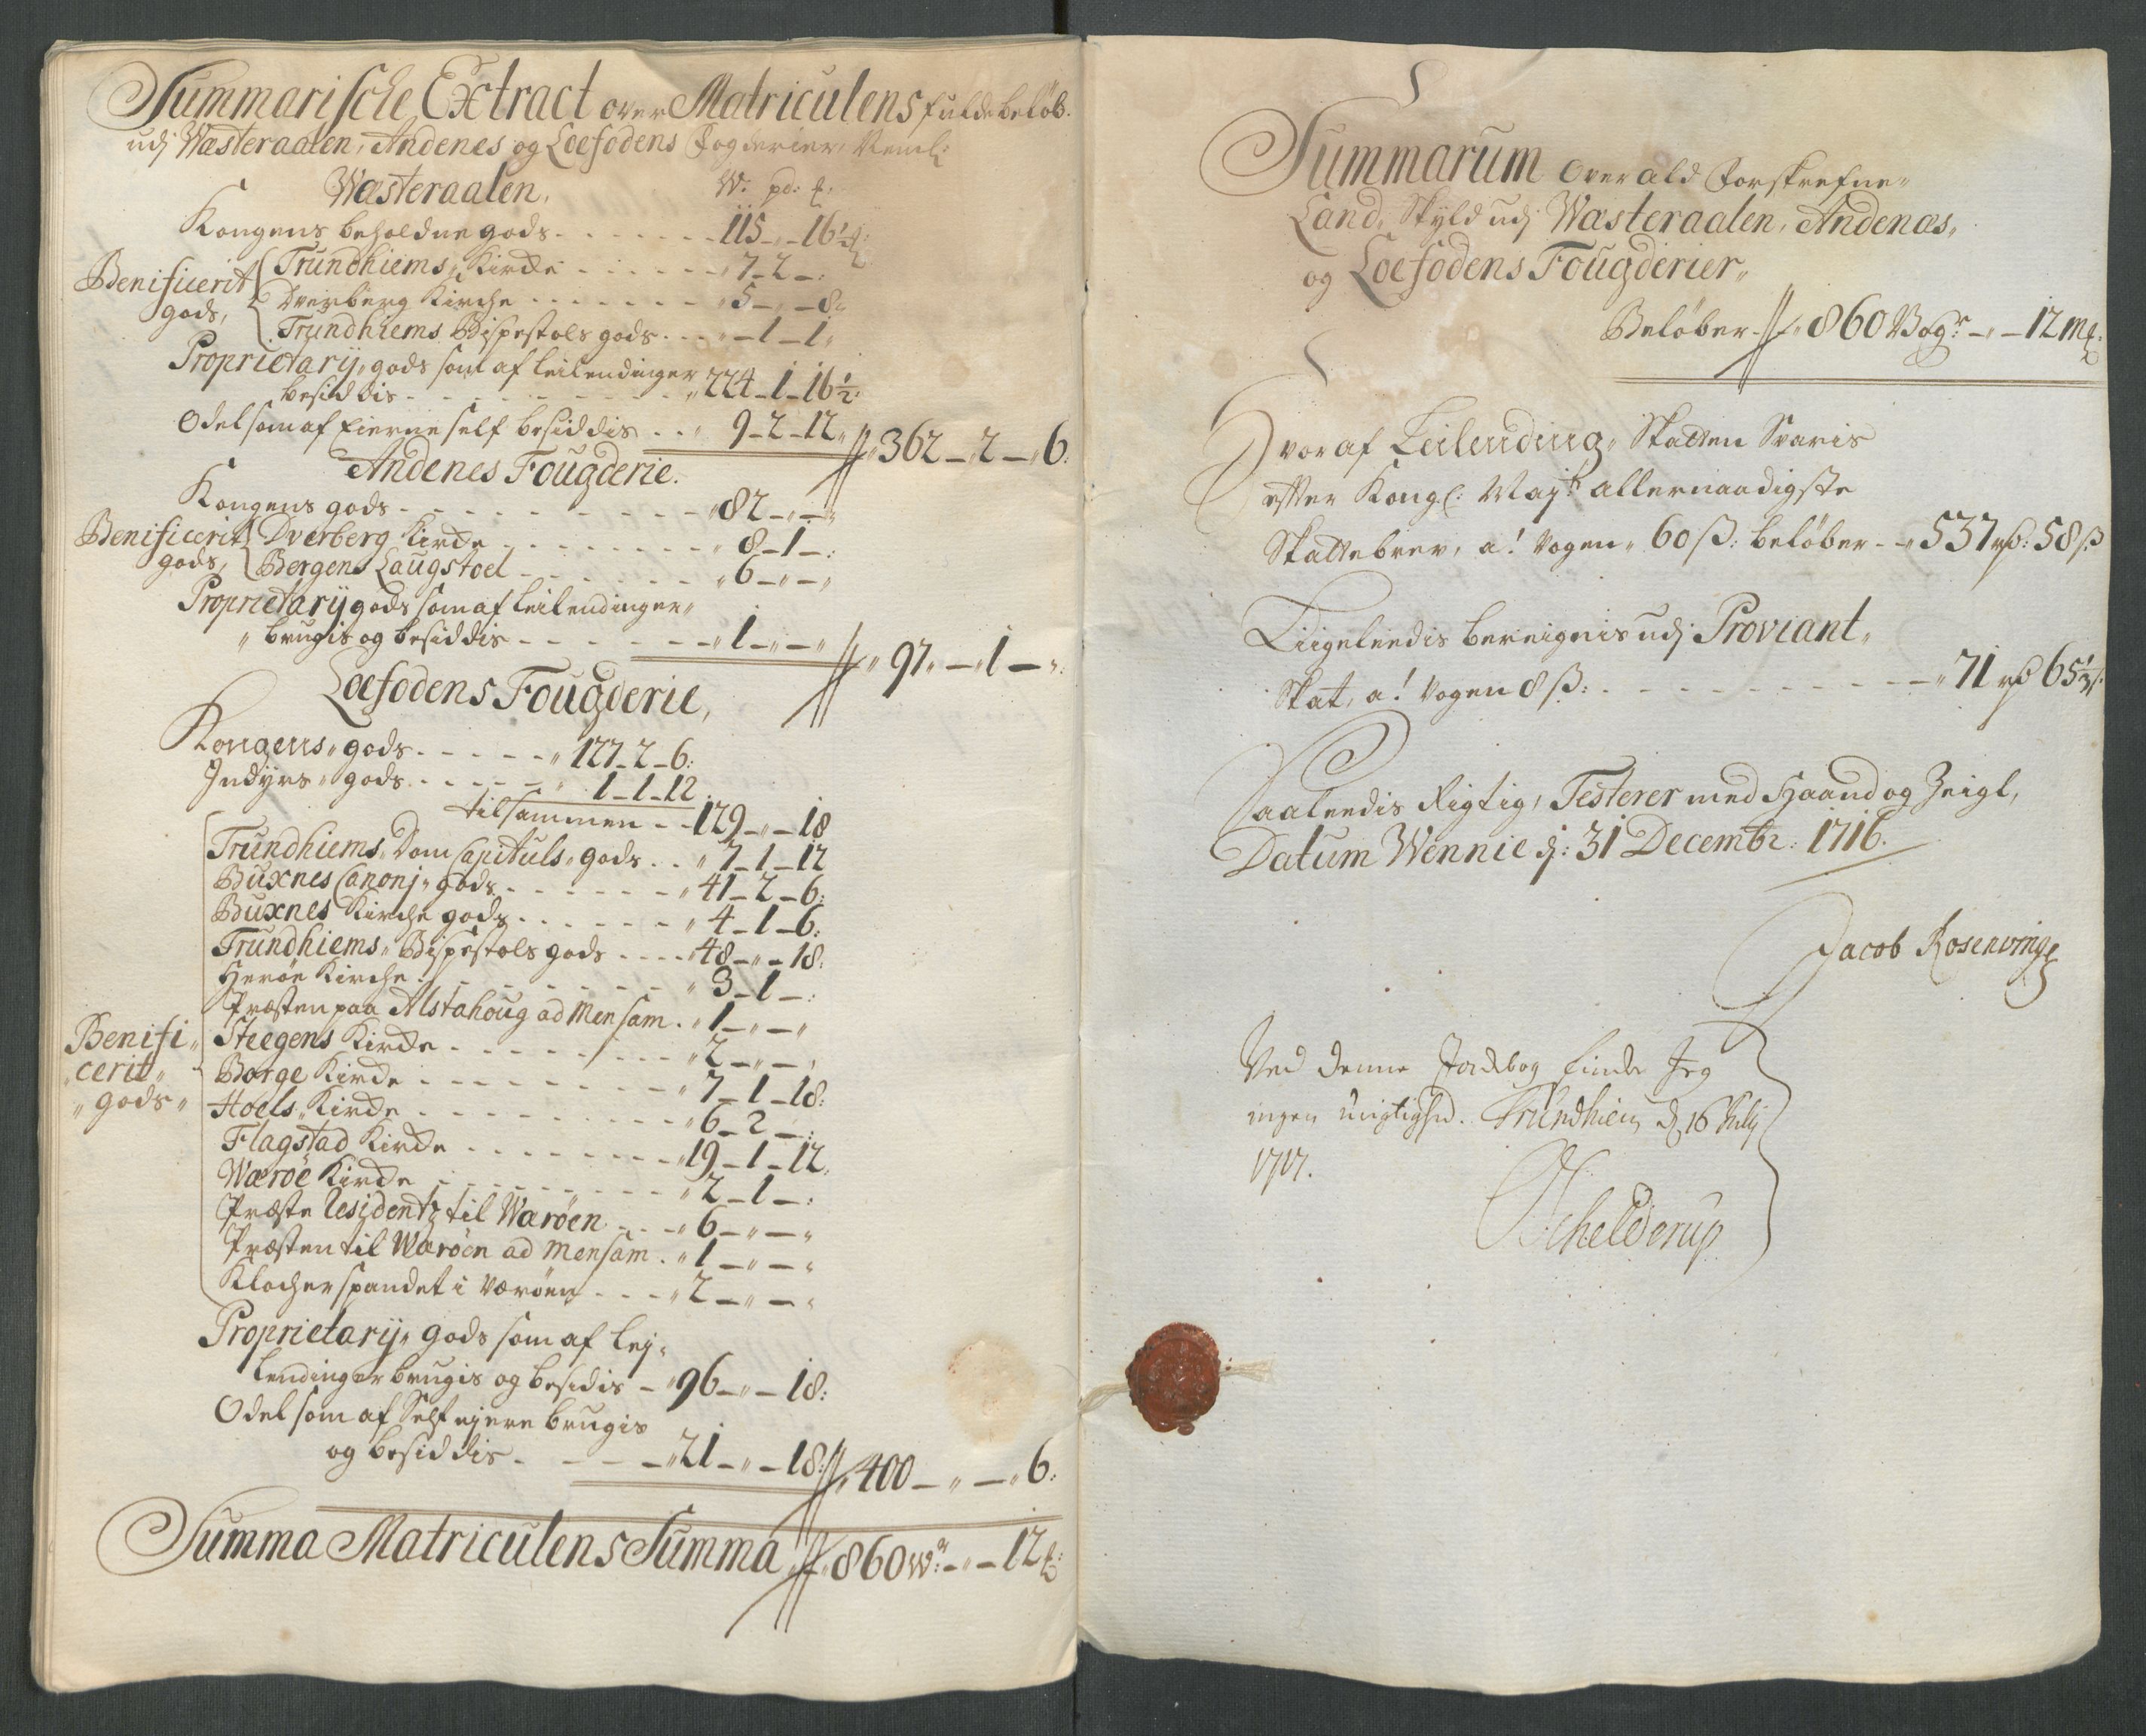 Summarische Extract over Matriculens fulde beløb.
udj Wæsteraalen, Andenes og Loefodens Fogderier, Neml:
Wæsteraalen.
W: pd: #:
Kongens beholdne gods - - - 115 - „ - 16½
Benificerit gods,
Trundhiems Kirke - - - „ 7 - 2 - :
Dverberg Kirche - - - „ 5 - „ - 8 „
Trundhiems Bispestols gods - - - „ - 1 - 1 „
Proprietarij gods som af leilendinger
besiddis - - - „ 224 - 1 - 16½:
Odel som af Eierne self besiddis - - „ 9 - 2 - 12 „ // 362 - „ 2 - „ 6:
Andenes Fougderie.
Kongens gods - - - „ 82 - „ - „
Benificerit gods,
Dverberg Kirke - - - „ 8 - 1 - :
Bergens Laugstoel - - - „ 6 - „ - „
Proprietarij gods som af leilendinger „
„ brugis og besiddis - - - „ 1 - „ - „ // „ 97 „ - „ 1 - „ :
Loefodens Fougderie,
Kongens „ gods - - - „ 127 - 2 - 6:
Indyrs „ gods - - - „ 1 - 1 - 12
tilsammen - - 129 - „ - 18
Benifi „
„ cerit „
„ gods „
Trundhiems „ Dom Capituls „ gods - - „ 7 - 1 - 12
Buxnes Canonj „ gods - - - „ 41 - 2 - 6:
Buxnes Kirche gods - - - „ 4 - 1 - 6:
Trundhiems „ Bispestols gods - - - „ 48 - „ - 18:
Herøe Kirche - - - „ 3 - 1 - :
Præsten paa Alstahoug ad Mensam - „ 1 - „ - „
Steegens Kirke - - - „ 2 - „ - ,
Borge Kirke - - - „ 7 - 1 - 18:
Hoels „ Kirke - - - „ 6 - 2 - :
Flagstad Kirke - - - „ 19 - 1 - 12,
Wærøe Kirke - - - „ 2 - 1 - :
Præste Residentz til Wærøen - - - „ 6 - „ - „
Præsten til Wærøen ad Mensam - „ 1 - „ - „
Klocherspandet i Værøen - - - „ 2 - „ - „
Proprietarij „ gods som af lej „
lendinger brugis og besidis - „ 96 - „ - 18:
Odel som af Self ejere brugis
og besiddis - - - „ 21 - „ - 18: // „ 400 - „ - „ 6:
Summa Matriculens Summa // „ 860 W: - „ - 12 #:
Summarum over ald Forskrefne „
Land „ Skyld udj Wæsteraalen, Andenæs „
og Loefodens Fougderier „
Beløber // „ 860 Vogr: - „ - 12 m#:
Hvoraf Leilending „ Skatten Svaris
efter Kongl: Mayts allernaadigste
Skattebrev, a! Vogen „ 60 ß: beløber - „ 537 rd: 58 ß
Liigeleedis bereignis udj Proviant „
Skat, a! Vogen 8 ß: - - - „ 71 rd 65⅓ ß:
Saaleedis Rigtig, Testerer med Haand og Zeigl,
Datum Wennie d: 31 Decembr: 1716.
Jacob Rosenvinge
Ved denne Jordebog finder Jeg
ingen urigtighed. Trundhiem d 16 Julij
1717.
Schelderup